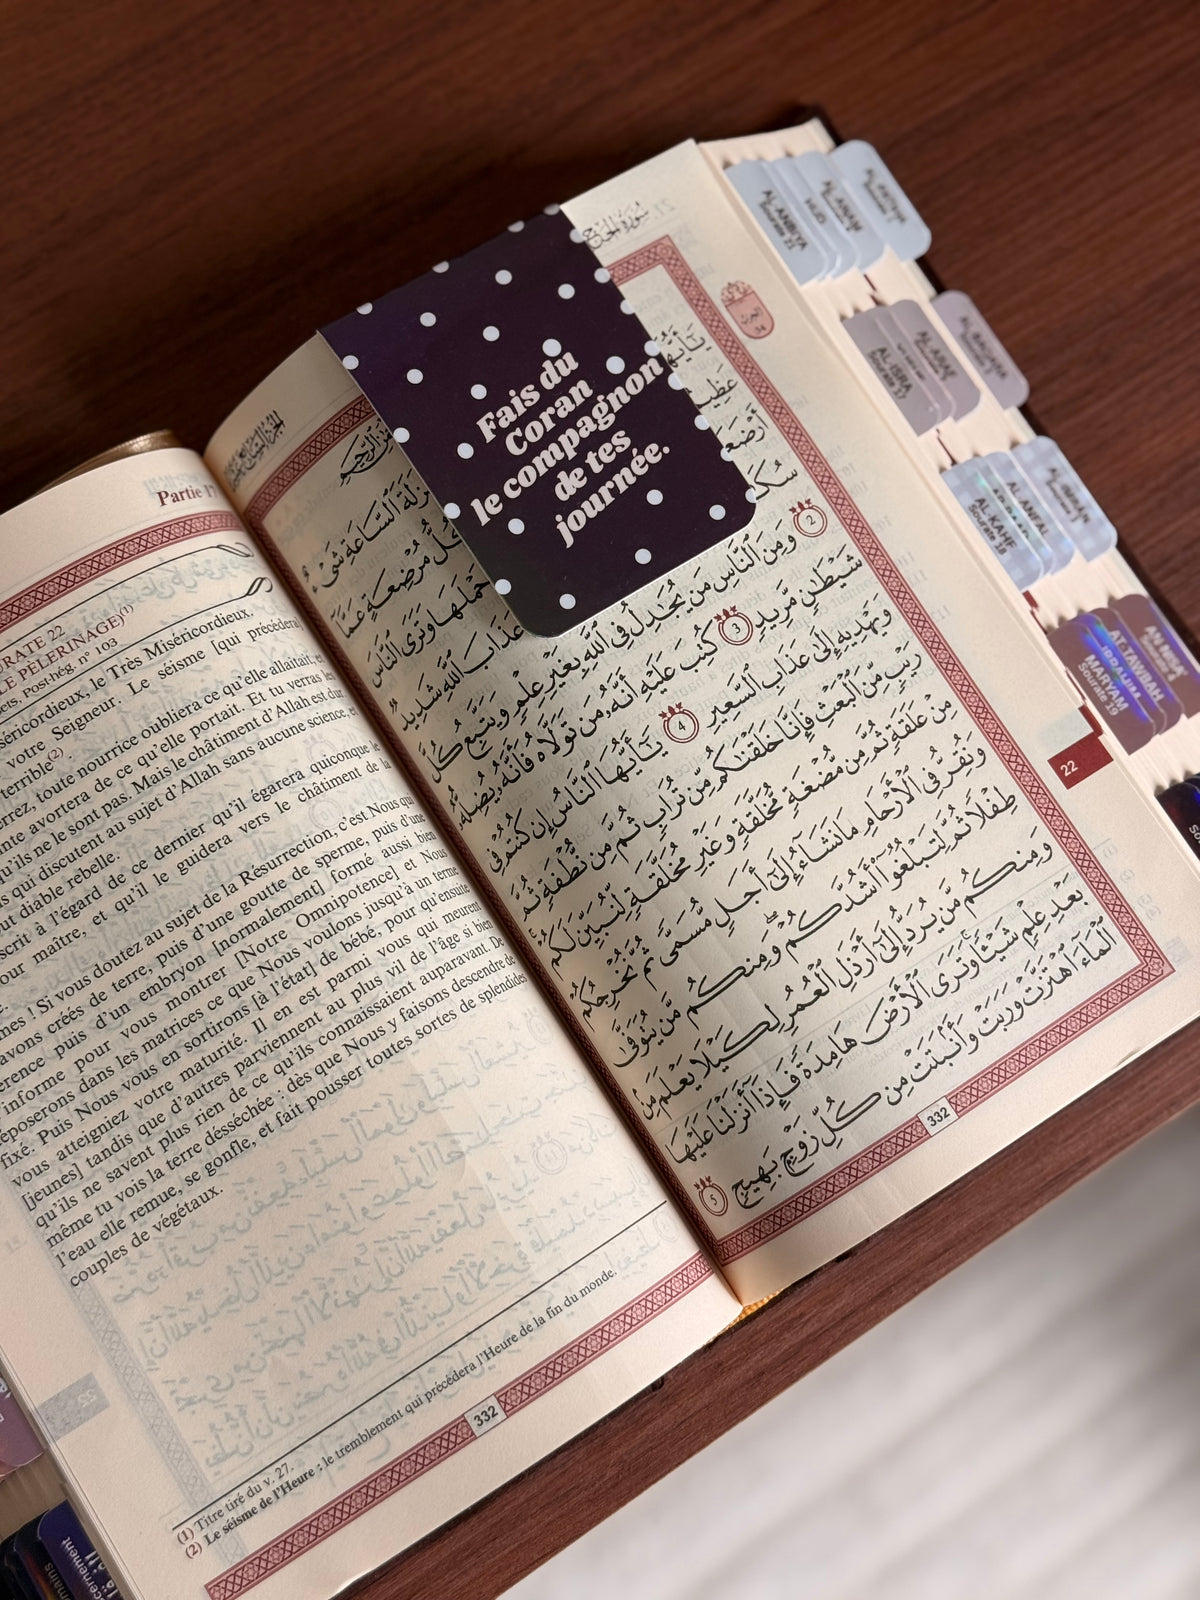 Partie 17
URATE 22
LE PELERINAGE)(1)
ets. Post-hég. n° 103
séricordieux, le Très Miséricordieux.
votre Seigneur. Le séisme [qui précédera]
terrible(2).
errez, toute nourrice oubliera ce qu'elle allaitait, et
inte avortera de ce qu'elle portait. Et tu verras les
qu'ils ne le sont pas. Mais le châtiment d'Allah est dur.
s qui discutent au sujet d'Allah sans aucune science, et
out diable rebelle.
scrit à l'égard de ce dernier qu'il égarera quiconque le
our maître, et qu'il le guidera vers le châtiment de la
mes ! Si vous doutez au sujet de la Résurrection, c'est Nous qui
avons créés de terre, puis d'une goutte de sperme, puis d'une
érence puis d'un embryon [normalement] formé aussi bien
informe pour vous montrer [Notre Omnipotence] et Nous
époserons dans les matrices ce que Nous voulons jusqu'à un terme
fixé. Puis Nous vous en sortirons [à l'état] de bébé, pour qu'ensuite
vous atteigniez votre maturité. Il en est parmi vous qui meurent
[jeunes] tandis que d'autres parviennent au plus vil de l'âge si bien
qu'ils ne savent plus rien de ce qu'ils connaissaient auparavant. De
même tu vois la terre désséchée : dès que Nous y faisons descendre de
l'eau elle remue, se gonfle, et fait pousser toutes sortes de splendides
couples de végétaux.
(1) Titre tiré du v. 27.
(2) Le séisme de l'Heure : le tremblement qui précédera l'Heure de la fin du monde.
332
Fais du
Coran
le compagnon
de tes
journée.
سُورَةُ الحَجِّ
يَٰٓأَيُّهَا
زَلْزَلَةَ ٱلسَّاعَةِ شَىْءٌ عَظِيمٌ
كُلُّ مُرْضِعَةٍ عَمَّآ أَرْضَعَتْ
حَمْلَهَا وَتَرَى ٱلنَّاسَ سُكَٰرَىٰ
عَذَابَ ٱللَّهِ شَدِيدٌ 2 وَمِنَ ٱلنَّاسِ مَن
يُجَٰدِلُ فِى ٱللَّهِ بِغَيْرِ عِلْمٍ وَيَتَّبِعُ كُلَّ شَيْطَٰنٍ مَّرِيدٍ 3
كُتِبَ عَلَيْهِ أَنَّهُۥ مَن تَوَلَّاهُ فَأَنَّهُۥ يُضِلُّهُۥ وَيَهْدِيهِ إِلَىٰ عَذَابِ ٱلسَّعِيرِ 4
يَٰٓأَيُّهَا ٱلنَّاسُ إِن كُنتُمْ فِى رَيْبٍ مِّنَ ٱلْبَعْثِ
فَإِنَّا خَلَقْنَٰكُم مِّن تُرَابٍ ثُمَّ مِن نُّطْفَةٍ ثُمَّ مِنْ عَلَقَةٍ
ثُمَّ مِن مُّضْغَةٍ مُّخَلَّقَةٍ وَغَيْرِ مُخَلَّقَةٍ لِّنُبَيِّنَ لَكُمْ وَنُقِرُّ فِى
ٱلْأَرْحَامِ مَا نَشَآءُ إِلَىٰٓ أَجَلٍ مُّسَمًّى ثُمَّ نُخْرِجُكُمْ طِفْلًا ثُمَّ
لِتَبْلُغُوٓا۟ أَشُدَّكُمْ وَمِنكُم مَّن يُتَوَفَّىٰ وَمِنكُم مَّن يُرَدُّ إِلَىٰٓ
أَرْذَلِ ٱلْعُمُرِ لِكَيْلَا يَعْلَمَ مِنۢ بَعْدِ عِلْمٍ شَيْـًٔا وَتَرَى
ٱلْأَرْضَ هَامِدَةً فَإِذَآ أَنزَلْنَا عَلَيْهَا ٱلْمَآءَ ٱهْتَزَّتْ
وَرَبَتْ وَأَنۢبَتَتْ مِن كُلِّ زَوْجٍۭ بَهِيجٍ 5
332
22
AL-ANBIYA
HUD
AL-ISRA
Sourate 17
AL-ARAF
AL-BAQARA
AL-KAHF
Sourate 18
AL-ANFAL
MARYAM
Sourate 19
IBRAHIM
AT-TAWBAH
AN-NISA